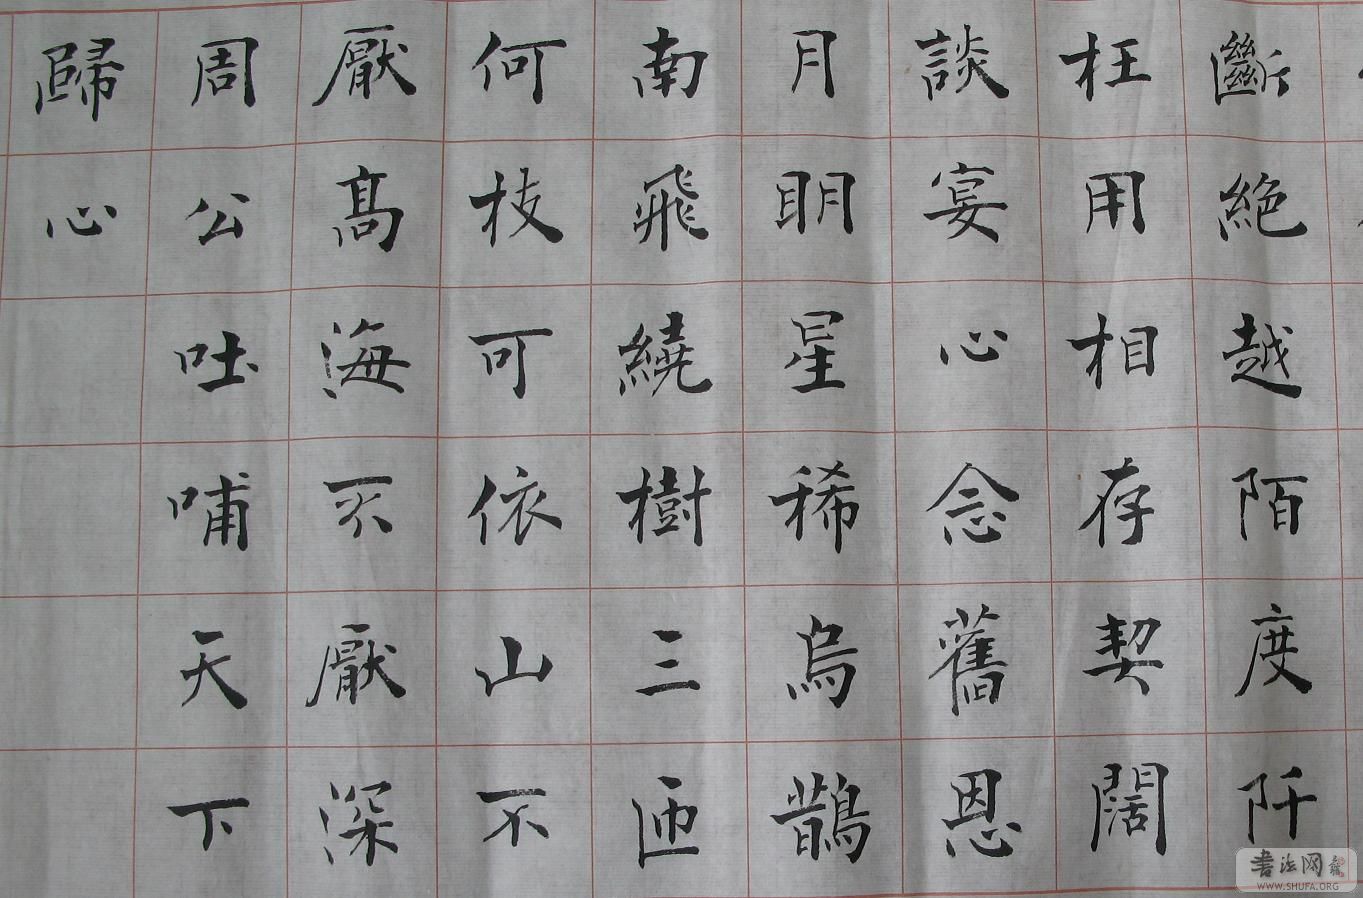 斷絕越陌度阡
枉用相存契闊
談宴心念舊恩
月明星稀烏鵲
南飛繞樹三匝
何枝可依山不
厭高海不厭深
周公吐哺天下
歸心
书法网
WWW.SHUFA.ORG